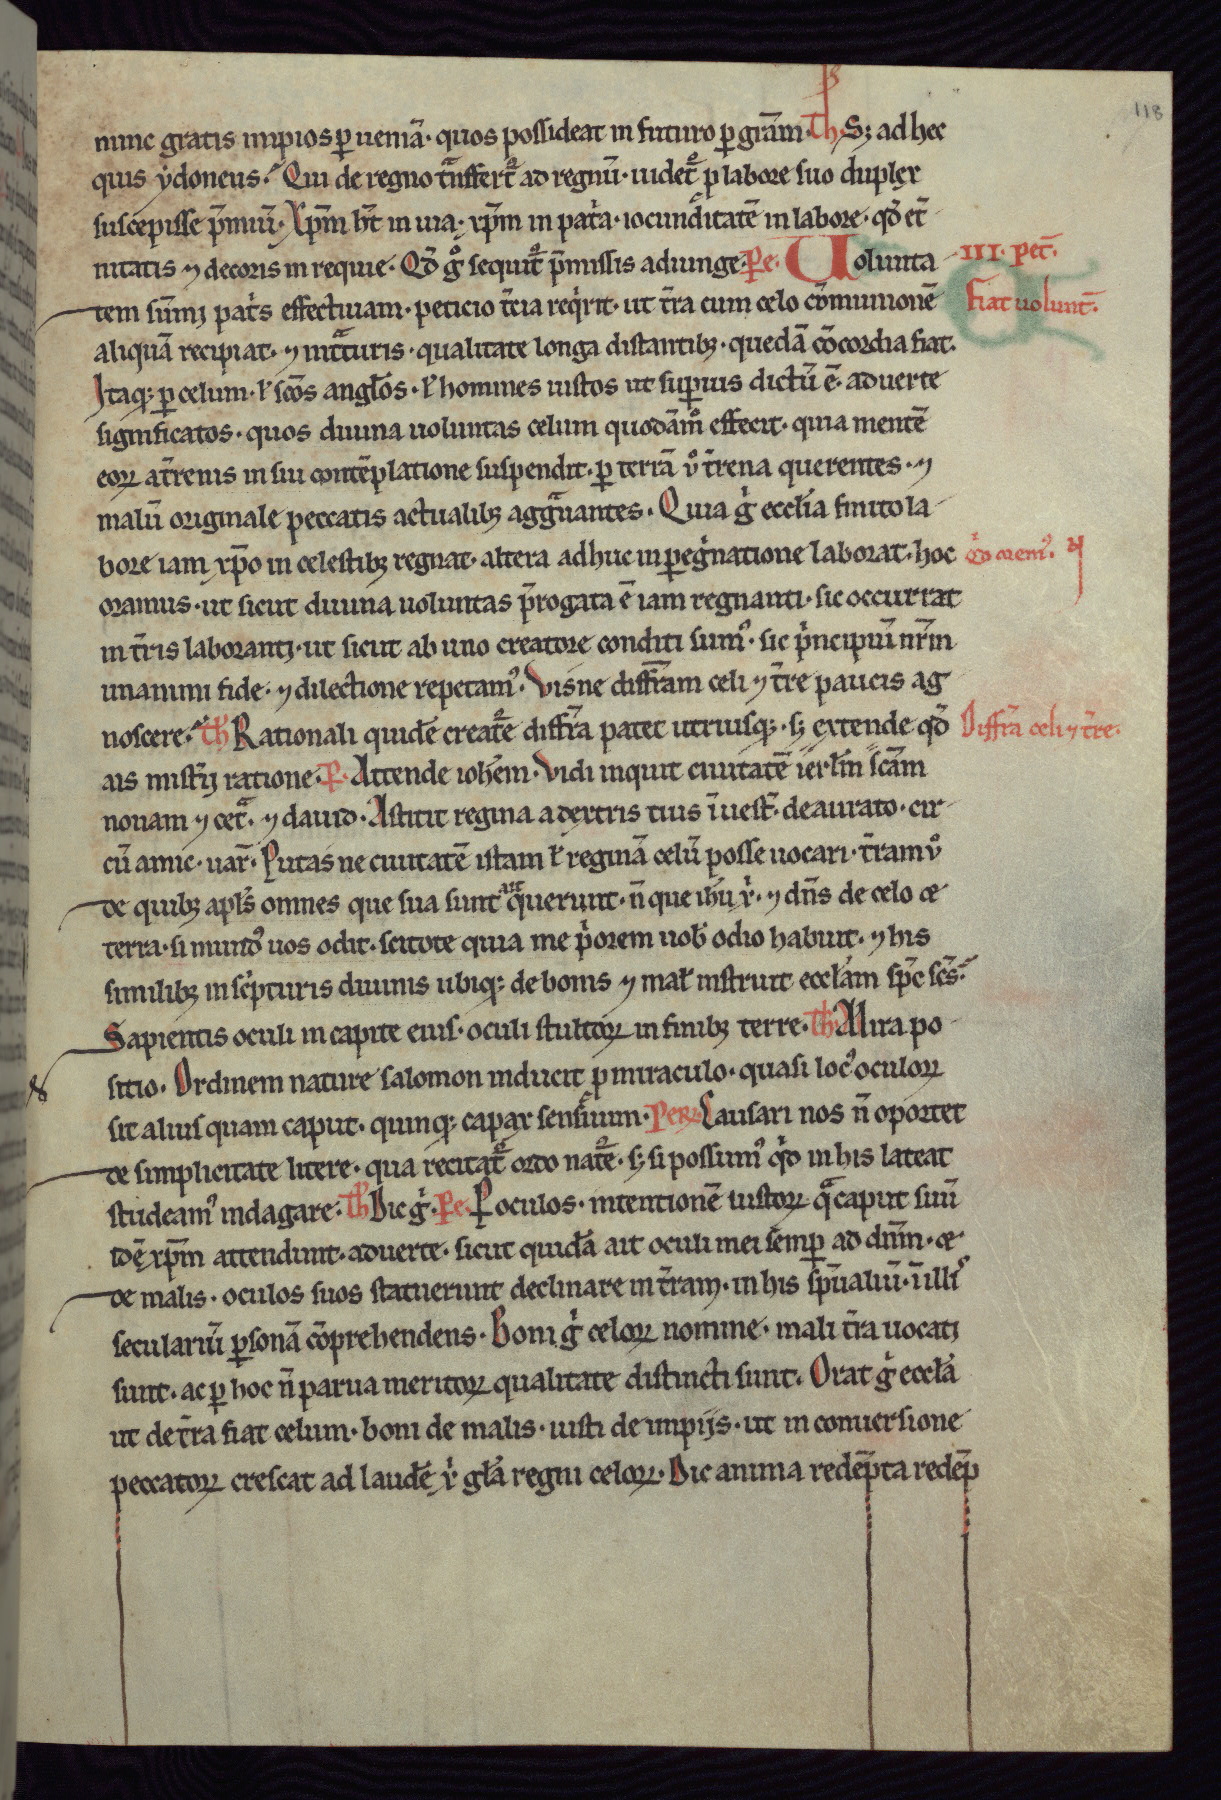 118
nunc gratis impios ꝑ ueniā· quos possideat in futuro ꝑ gr̄am· Th̄ Sꝫ ad hec
quis ẏdoneus? Qui de regno tͣnsfert᷑ ad regnū· uidet᷑ ꝓ labore suo duplex
suscepisse p̄miū· Xp̄m hr̄t in uia· xp̄m in pat̄a· iocunditatē in labore· qd̄ et̄
nitatis ⁊ decoris in requie· Qd̄ gͦ sequit᷑ p̄missis adiunge· Pe· Uolunta
III· pet̄·
tem sūmi pat̄s effectiuam· peticio t̄cia reqͥrit· ut t̄ra cum celo cōmunionē
fiat uolunt̄·
aliquā recipiat· ⁊ in tͣturis qualitate longa distantibꝫ· quedā cōcordia fiat·
Itaqꝫ ꝑ celum· ł sc̄os angl̄os· ł homines iustos ut supͥius dictū ē· aduerte
significatos· quos diuina uoluntas celum quodāmͦ effecit· quia mentē
eoꝝ at̄renis in sui contēplatione suspendit· ꝑ terrā ů t̄rena querentes· ⁊
malū originale peccatis actualibꝫ aggͣuantes· Quia gͥ eccl̄ia finito la
bore iam xp̄o in celestibꝫ regnat· altera adhuc in peregͥnatione laborat· hoc
Qͥd oremꝰ·
oramus· ut sicut diuina uoluntas p̄rogata ē iam regnanti· sic occurrat
in t̄ris laboranti· ut sicut ab uno creatore conditi sumꝰ· sic pͥncipiū nr̄m
unanimi fide· ⁊ dilectione repetamꝰ· Visne diffr̄am celi ⁊ t̄re paucis ag
noscere? Th̄ Rationali quidē creat᷑e diffr̄a patet utriusqꝫ· sꝫ extende qd̄
Diffr̄a celi ⁊ t̄re·
ais misṫij ratione· P· Attende ioh̄em· Vidi inquit ciuitatē ierl̄m sc̄am
nouam ⁊ cetͣ· ⁊ dauid· Astitit regina a dextris tuis ī uest̄· deaurato· cir
cū amic· uar̄· Putas ne ciuitatē istam ł reginā celū posse uocari· t̄ram ů
de quibꝫ apl̄s omnes que sua sunt q̄uerunt· n̄ que ih̄u x̄· ⁊ dn̄s de celo ⁊
terra· si mundꝰ uos odit· scitote quia me pͥorem uob̄ odio habuit· ⁊ his
similibꝫ in scͥpturis diuinis ubiqꝫ de bonis ⁊ mał instruit eccl̄am sp̄c sc̄s·
Sapientis oculi in capite eius· oculi stultoꝝ in finibꝫ terre· Th̄ Mira po
sitio· Ordinem nature salomon inducit ꝓ miraculo· quasi locꝰ oculoꝝ
sit alius quam caput· quinqꝫ capax sensuum· Per· Causari nos n̄ oportet
de simplicitate litere· qua recitat᷑ ordo nat᷑e· sꝫ si possumꝰ qͥd in his lateat
studeamꝰ indagare· Th̄ Dic gͥ· Pe· Ꝑ oculos· intentionē iustoꝝ qͣ caput suū
idē xp̄m attendunt· aduerte· sicut quidā ait oculi mei semꝑ ad dn̄m· ⁊
de malis· oculos suos statuerunt declinare in t̄ram· in his sp̄ualiū· ī illiꝰ
seculariū ꝑsonā cōprehendens· Boni gͥ celoꝝ nomine· mali t̄ra uocati
sunt· ac ꝑ hoc n̄ parua meritoꝝ qualitate distincti sunt· Orat gͥ eccl̄a
ut de t̄ra fiat celum· boni de malis· iusti de impijs· ut in conuersione
peccatoꝝ crescat ad laudē x̄ⁱ gl̄a regni celoꝝ· Dic anima redēpta redēp